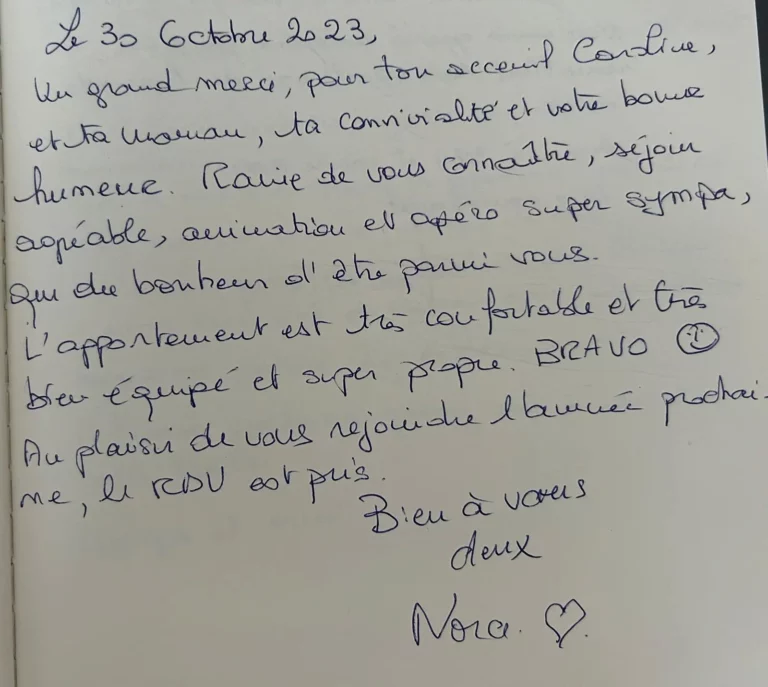 Le 30 Octobre 2023,
Un grand merci, pour ton acceuil Caroline,
et ta maman, ta convivialité et votre bonne
humeur. Ravie de vous connaître, séjour
agréable, animation et apéro super sympa,
que du bonheur d'être parmi vous.
L'appartement est très confortable et très
bien équipé et super propre. BRAVO
Au plaisir de vous rejoindre l'année prochai-
ne, le RDV est pris.
Bien à vous
deux
Nora.